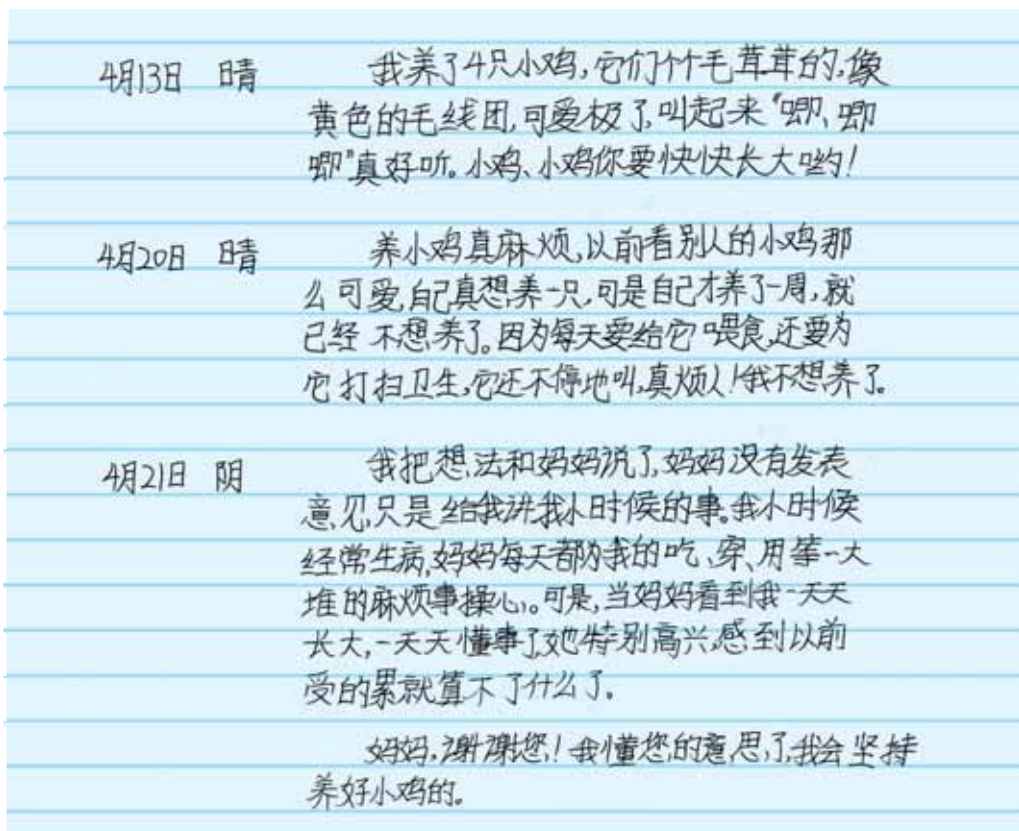 4月13日 晴 我养了4只小鸡,它们个个毛茸茸的,像
黄色的毛线团,可爱极了,叫起来“唧、唧
唧”真好听。小鸡、小鸡你要快快长大哟!
4月20日 晴 养小鸡真麻烦,以前看别人的小鸡那
么可爱,自己真想养一只,可是自己才养了一周,就
已经不想养了。因为每天要给它喂食,还要为
它打扫卫生,它还不停地叫,真烦人!我不想养了。
4月21日 阴 我把想法和妈妈说了,妈妈没有发表
意见,只是给我讲我小时候的事。我小时候
经常生病,妈妈每天都为我的吃、穿、用等一大
堆的麻烦事操心。可是,当妈妈看到我一天天
长大,一天天懂事了,她特别高兴,感到以前
受的累就算不了什么了。
妈妈,谢谢您!我懂您的意思了,我会坚持
养好小鸡的。